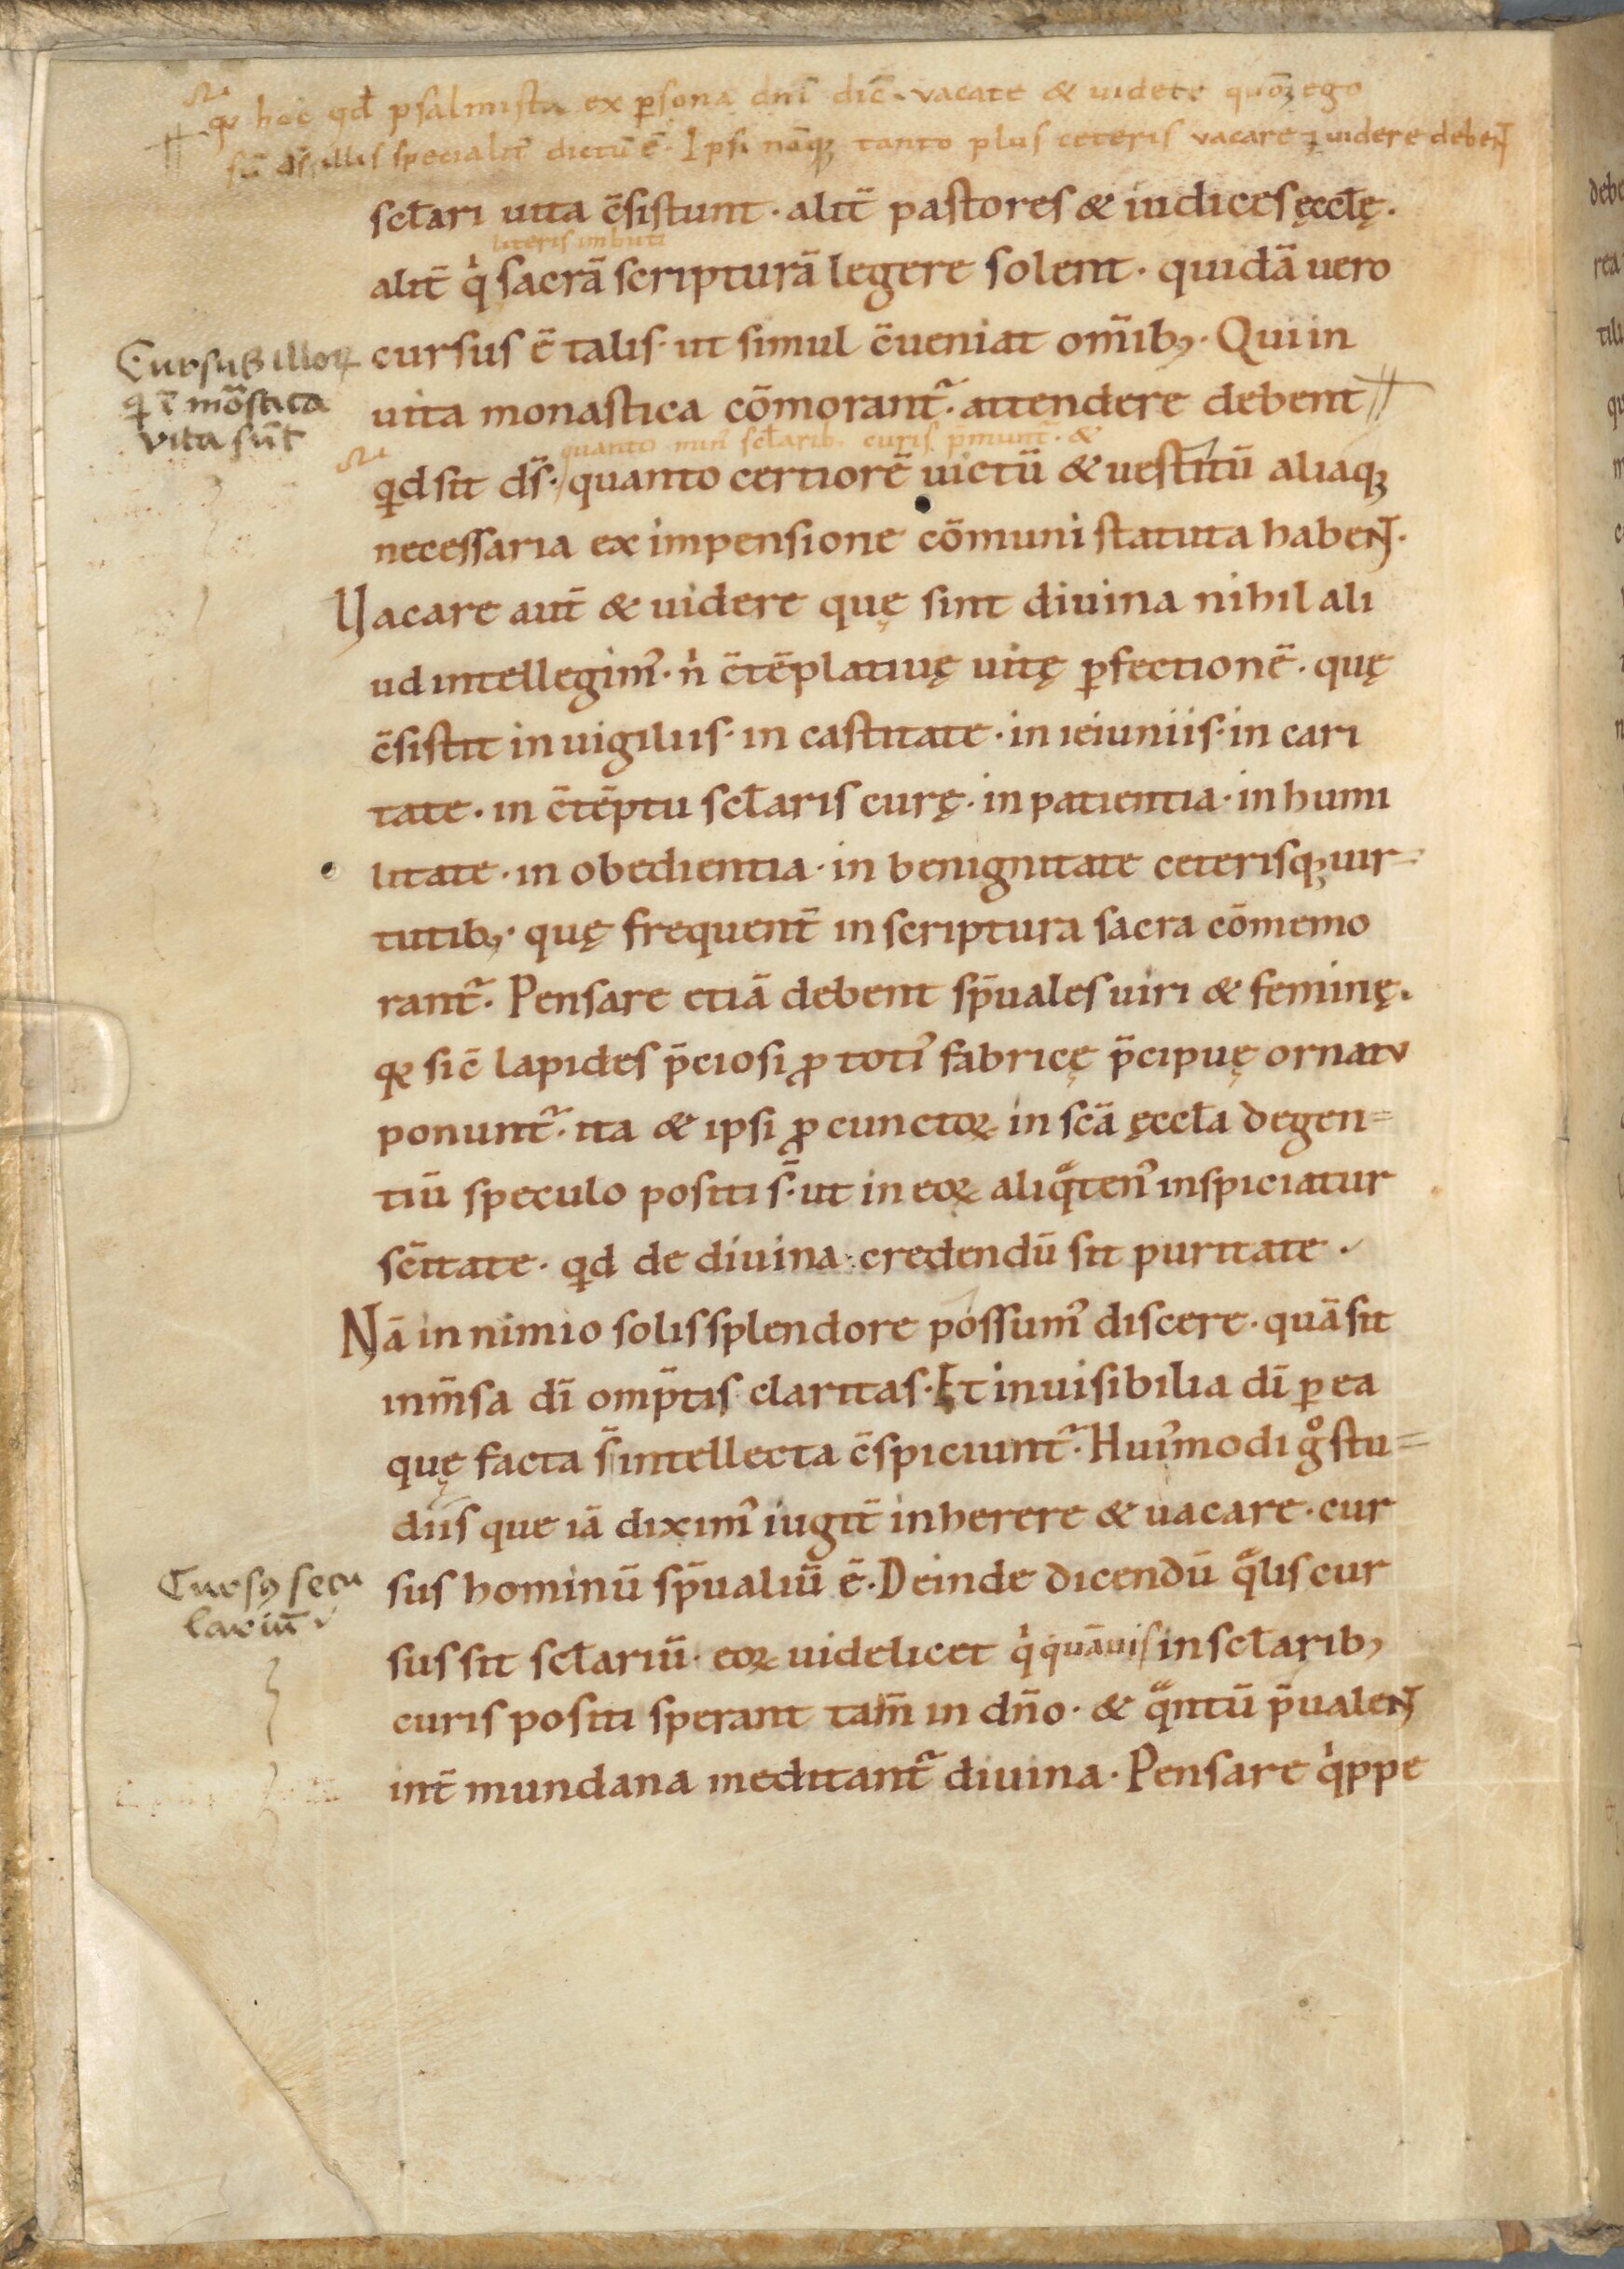 qꝛ hoc qđ psalmista ex ꝑsona dn̄i dic̄. vacate & uidete quō ego
sū ds̄ illis specialit̄ dictū ē. Ipsi nāq; tanto plus ceteris vacare ⁊ uidere debent
scl̄ari uita c̄sistunt. alit̄ pastores & iudices ęccl̄ę.
literis imbuti
alit̄ qͥ sacrā scripturā legere solent. quidā uero
Cursus illoꝝ
q ī mōstica
vita sūt
cursus ē talis. ut simul c̄ueniat om̄ib;. Qui in
uita monastica cōmorant᷑. attendere debent
quanto scl̄arib. curis p̄munt᷑. &
qͥd sit ds̄. quanto certiorē uictū & uestitū aliaq;
necessaria ex impensione cōmuni statuta habent.
Uacare aut̄ & uidere quę sint diuina nihil ali
ud intellegim᾿. n̓ c̄tēplatiuę uitę ꝑfectionē. quę
c̄sistit in uigiliis. in castitate. in ieiuniis. in cari
tate. in c̄tēptu scl̄aris curę. in patientia. in humi
litate. in obedientia. in benignitate ceterisq; uir-
tutib;. quę frequent̄ in scriptura sacra cōmemo
rant᷑. Pensare etiā debent sp̄uales uiri & feminę.
qꝛ sic̄ lapides p̄ciosi ꝓ toti᾿ fabricę p̄cipuę ornatu
ponunt᷑. ita & ipsi ꝓ cunctoꝝ in sc̄a ęccl̄a degen=
tiū speculo positi s̄. ut in eoꝝ aliqͣten᾿ inspiciatur
sc̄itate. qͥd de diuina credendū sit puritate.
Nā in nimio solis splendore possum᾿ discere. quā sit
inm̄sa dī omp̄tis claritas. Et inuisibilia dī ꝑ ea
quę facta s̄ intellecta c̄spiciunt᷑. Hui᾿modi gͦ stu=
diis que iā dixim᾿ iugit̄ inherere & uacare. cur
Cursꝰ secu
lariū
sus hominū sp̄ualiū ē. Deinde dicendū qͣlis cur
sus sit scl̄ariū. eoꝝ uidelicet qͥ quāuis in scl̄arib;
curis positi sperant tam̄ in dn̄o. & qͣntū p̄ualent
int̄ mundana meditant᷑ diuina. Pensare qͥppe